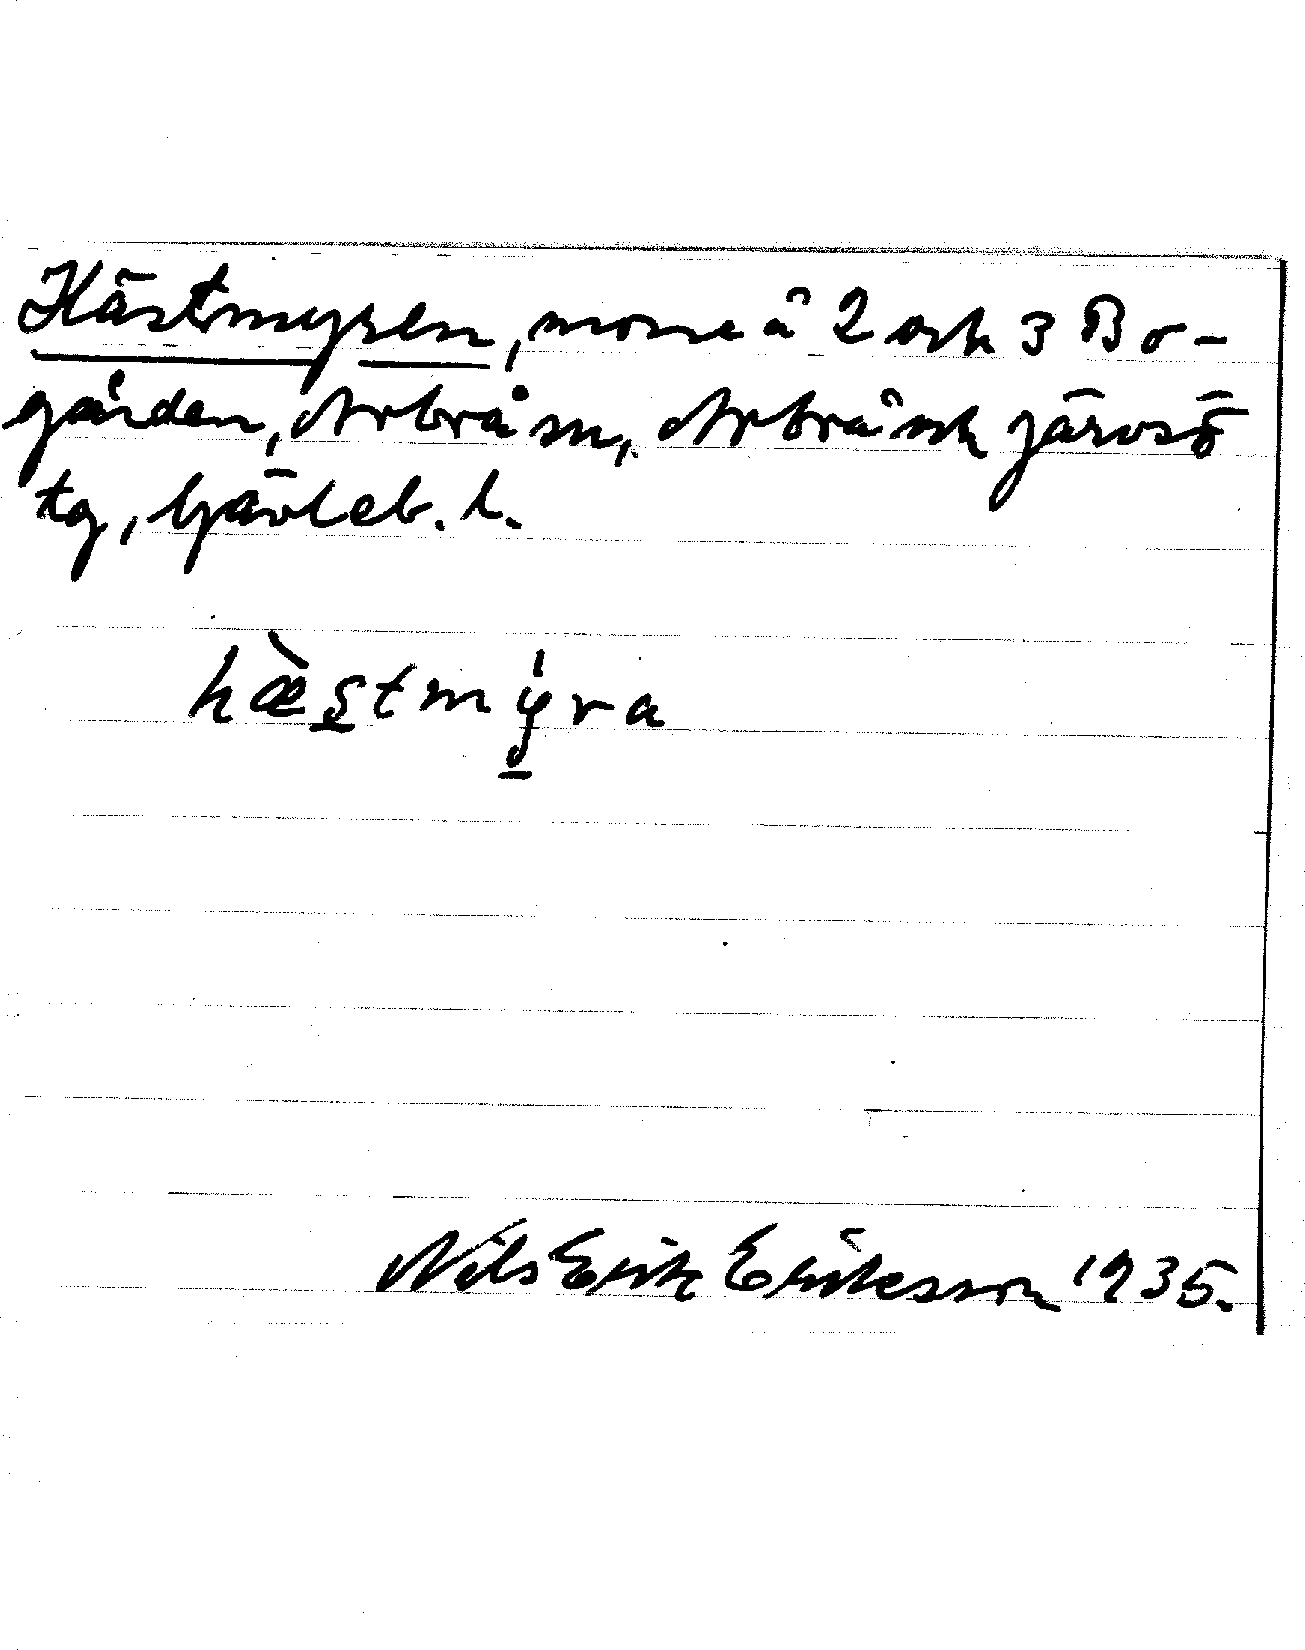 Hästmyren, mosse å 2 och 3 Bo-
gården, Arbrå sn, Arbrå och Järvsö
tg, Gävleb. l.
hæ̀stmy̱̍ra
Nils Erik Eriksson 1935.